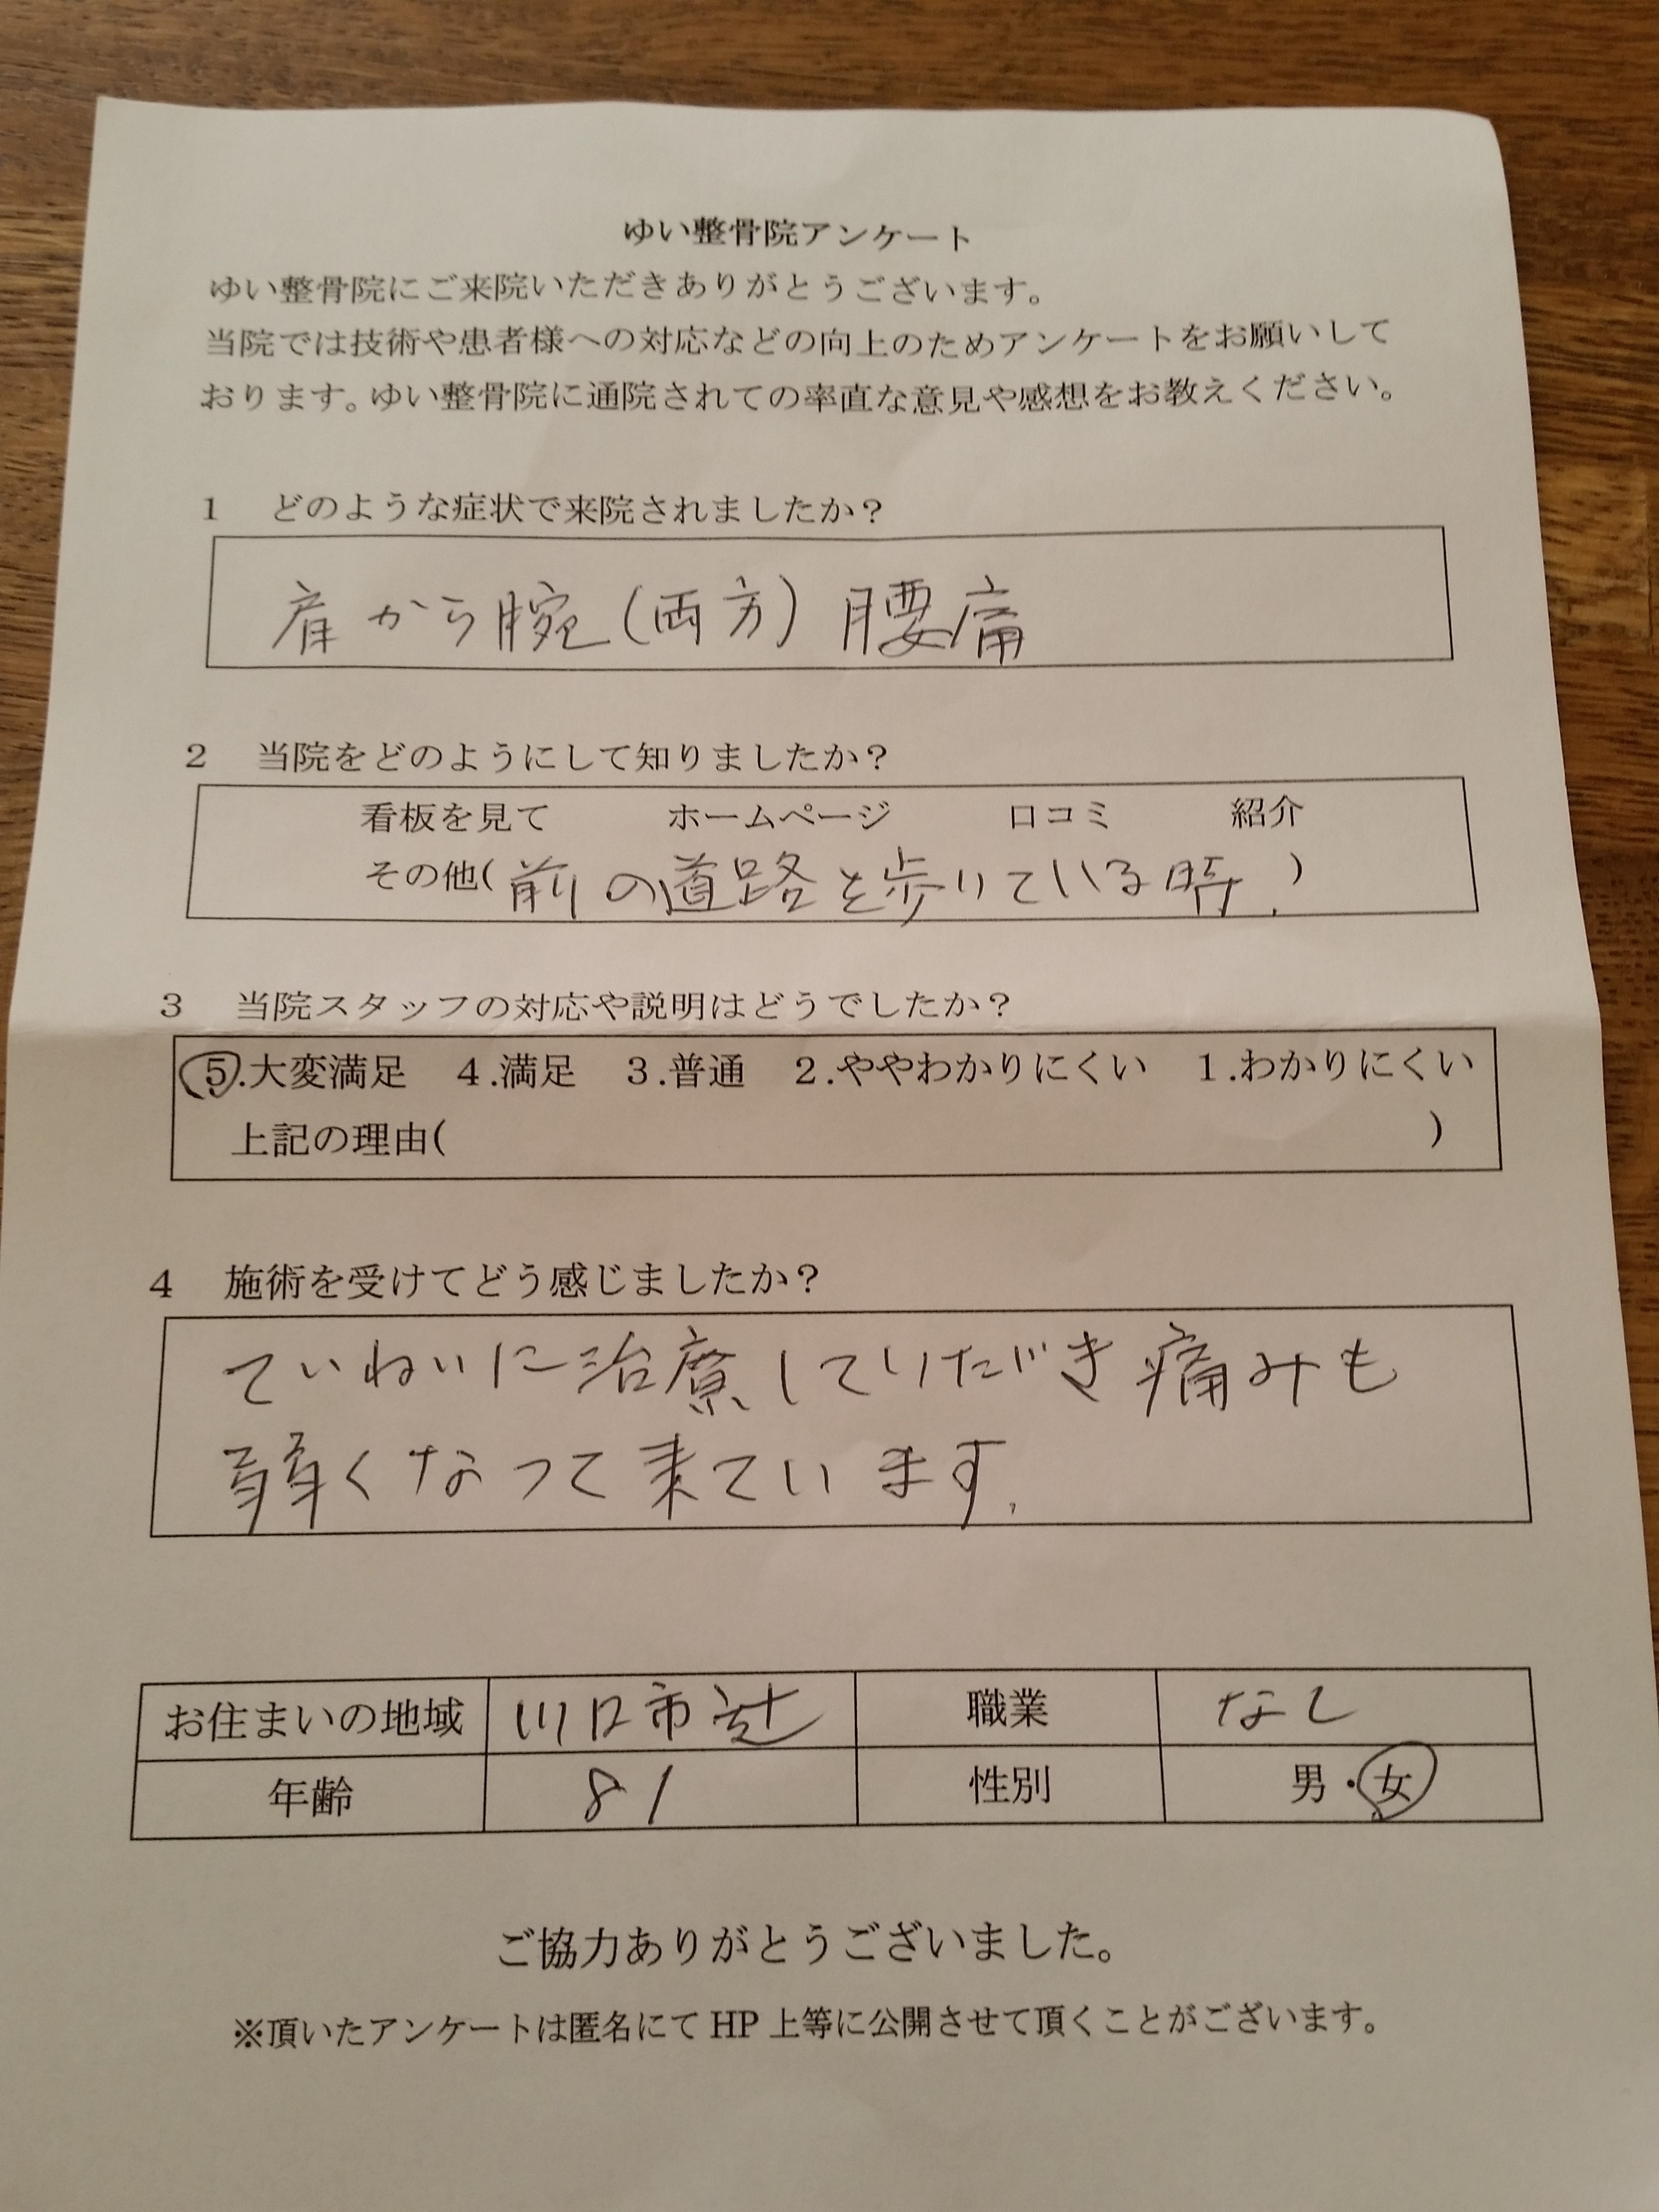 ゆい整骨院アンケート
ゆい整骨院にご来院いただきありがとうございます。
当院では技術や患者様への対応などの向上のためアンケートをお願いして
おります。ゆい整骨院に通院されての率直な意見や感想をお教えください。
1 どのような症状で来院されましたか?
肩から腕(両方) 腰痛
2 当院をどのようにして知りましたか?
看板を見て ホームページ 口コミ 紹介
その他(前の道路を歩いている時.)
3 当院スタッフの対応や説明はどうでしたか?
5.大変満足 4.満足 3.普通 2.ややわかりにくい 1.わかりにくい
上記の理由( )
4 施術を受けてどう感じましたか?
ていねいに治療していただき痛みも
弱くなって来ています.
お住まいの地域 川口市辻 職業 なし
年齢 81 性別 男・女
ご協力ありがとうございました。
※頂いたアンケートは匿名にて HP 上等に公開させて頂くことがございます。